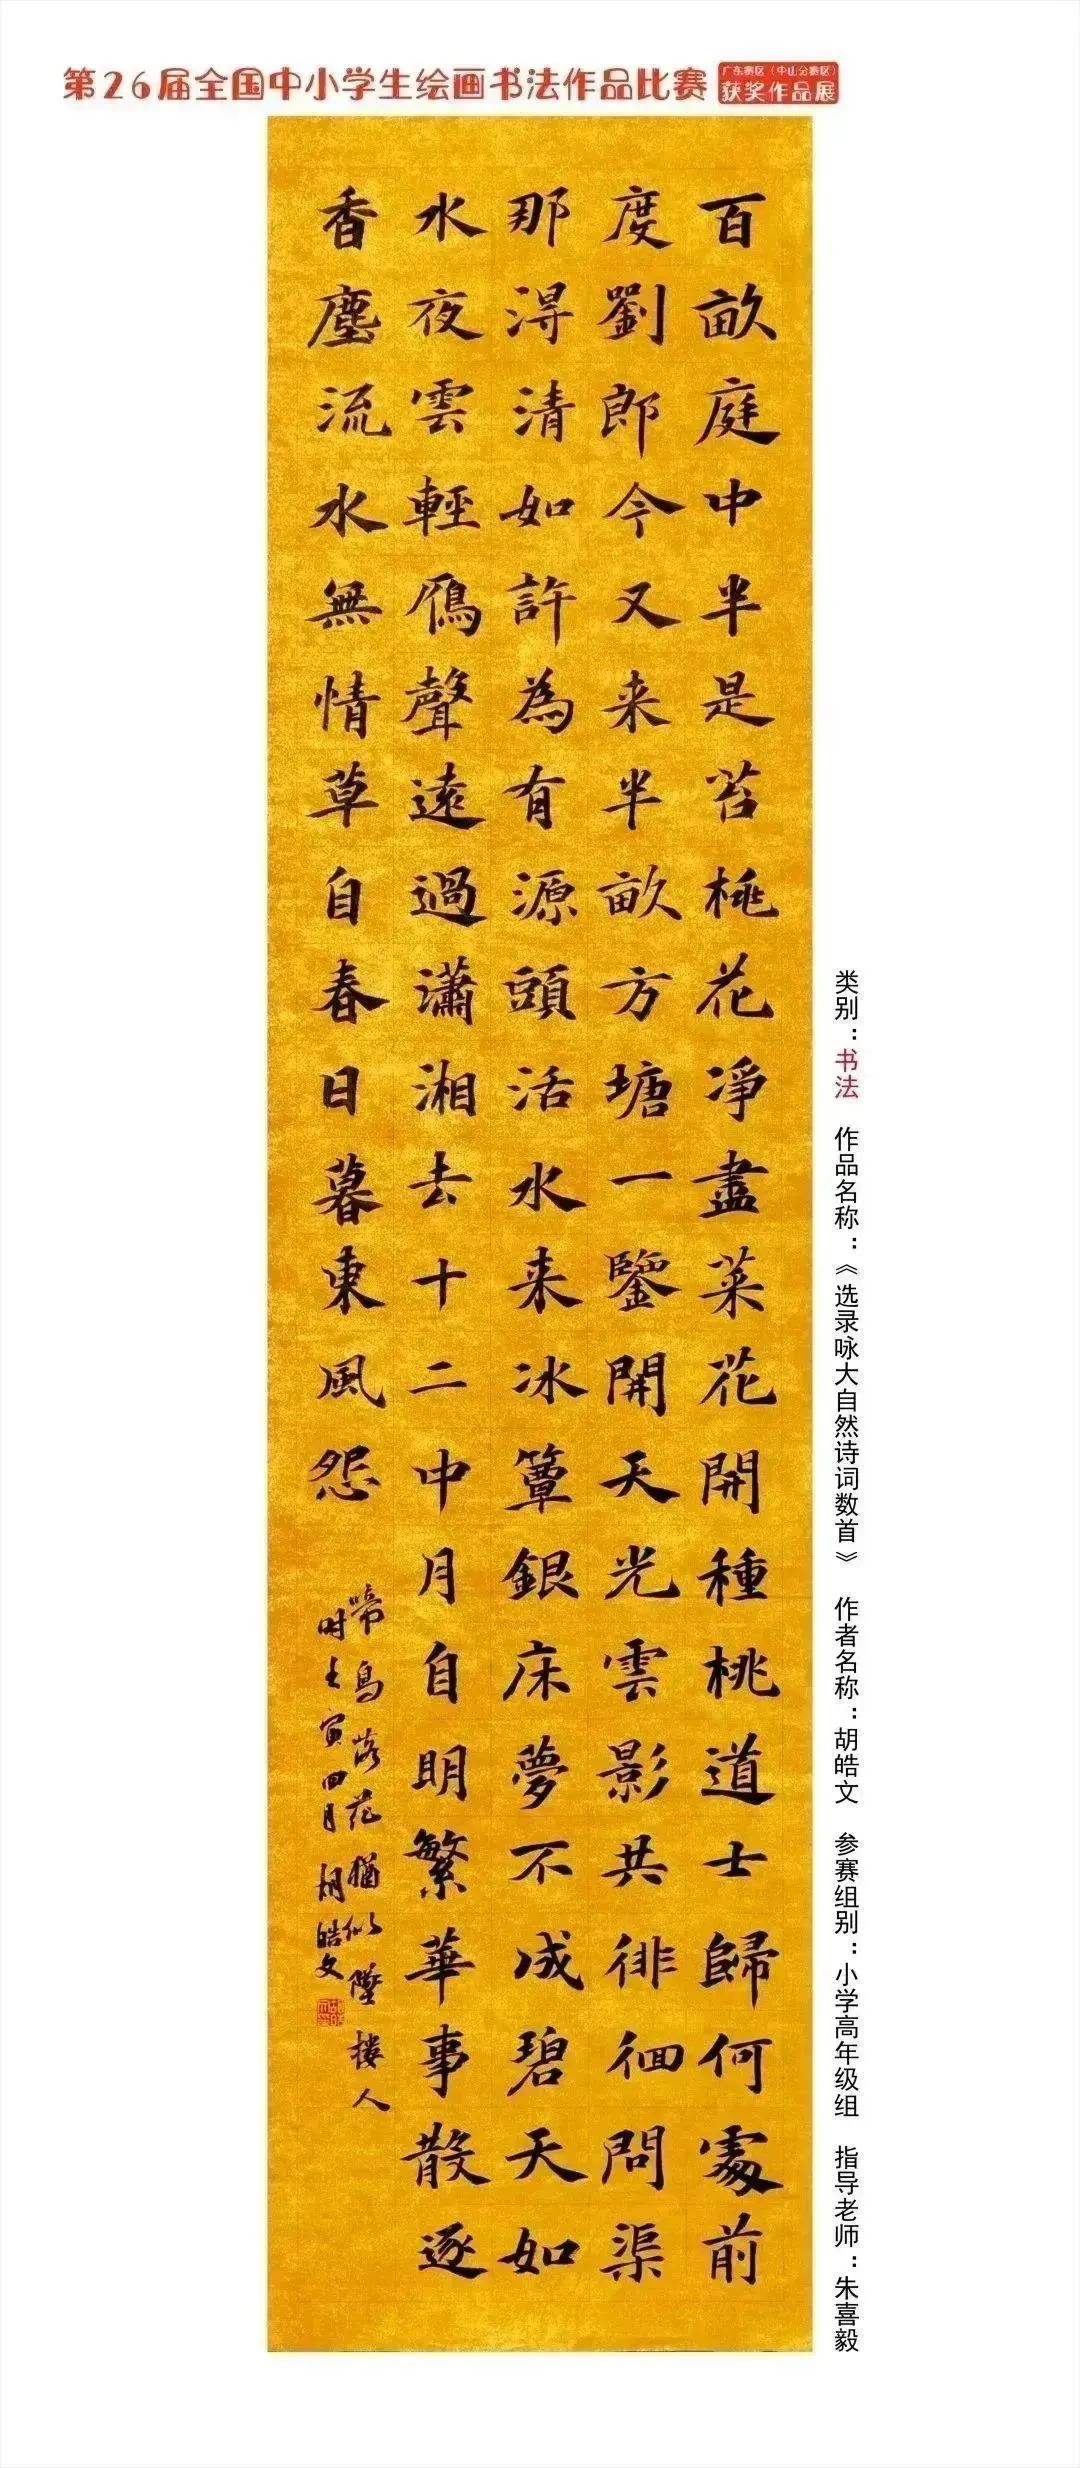 第26届全国中小学生绘画书法作品比赛
广东赛区（中山分赛区）
获奖作品展
百畝庭中半是苔桃花凈盡菜花開種桃道士歸何處前
度劉郎今又来半畝方塘一鑒開天光雲影共徘徊問渠
那得清如許為有源頭活水来冰簟銀床夢不成碧天如
水夜雲輕鴈聲遠過瀟湘去十二中月自明繁華事散逐
香塵流水無情草自春日暮東風怨
啼鳥落花猶似墜楼人
时壬寅四月胡皓文
类别：书法 作品名称：《选录咏大自然诗词数首》 作者名称：胡皓文 参赛组别：小学高年级组 指导老师：朱喜毅